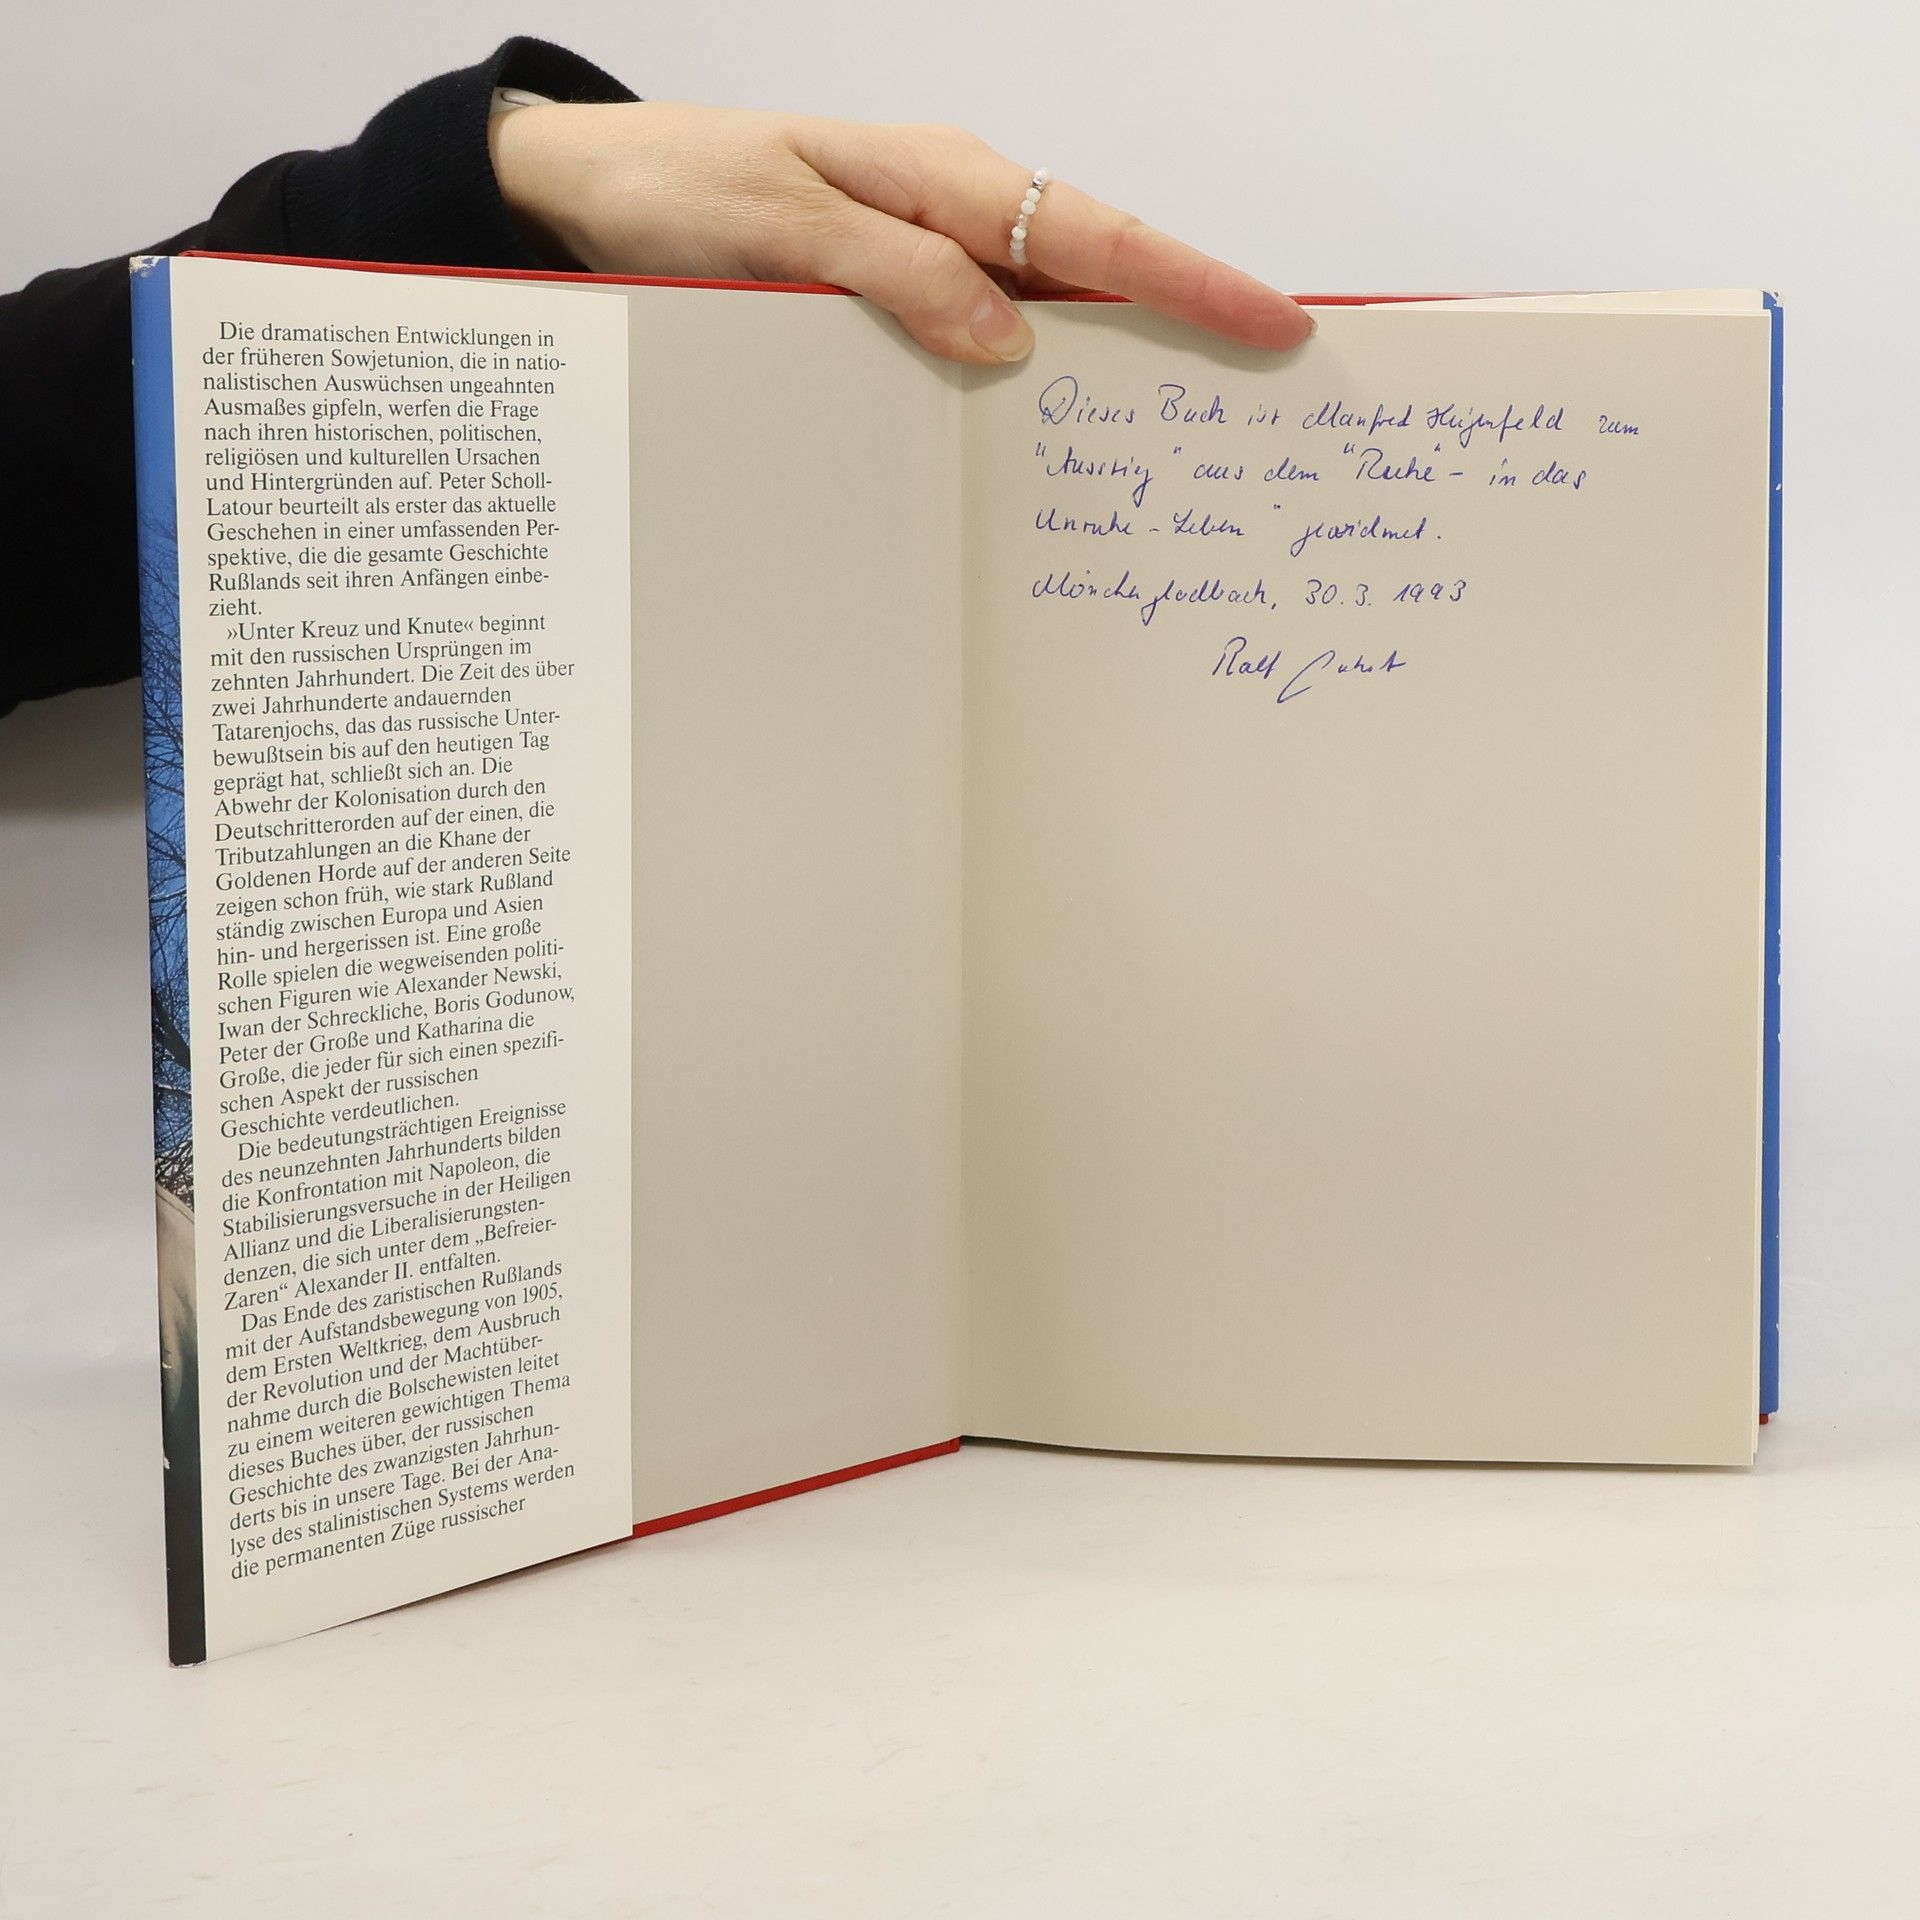 Die dramatischen Entwicklungen in
der früheren Sowjetunion, die in natio-
nalistischen Auswüchsen ungeahnten
Ausmaßes gipfeln, werfen die Frage
nach ihren historischen, politischen,
religiösen und kulturellen Ursachen
und Hintergründen auf. Peter Scholl-
Latour beurteilt als erster das aktuelle
Geschehen in einer umfassenden Per-
spektive, die die gesamte Geschichte
Rußlands seit ihren Anfängen einbe-
zieht.
»Unter Kreuz und Knute« beginnt
mit den russischen Ursprüngen im
zehnten Jahrhundert. Die Zeit des über
zwei Jahrhunderte andauernden
Tatarenjochs, das das russische Unter-
bewußtsein bis auf den heutigen Tag
geprägt hat, schließt sich an. Die
Abwehr der Kolonisation durch den
Deutschritterorden auf der einen, die
Tributzahlungen an die Khane der
Goldenen Horde auf der anderen Seite
zeigen schon früh, wie stark Rußland
ständig zwischen Europa und Asien
hin- und hergerissen ist. Eine große
Rolle spielen die wegweisenden politi-
schen Figuren wie Alexander Newski,
Iwan der Schreckliche, Boris Godunow,
Peter der Große und Katharina die
Große, die jeder für sich einen spezifi-
schen Aspekt der russischen
Geschichte verdeutlichen.
Die bedeutungsträchtigen Ereignisse
des neunzehnten Jahrhunderts bilden
die Konfrontation mit Napoleon, die
Stabilisierungsversuche in der Heiligen
Allianz und die Liberalisierungsten-
denzen, die sich unter dem „Befreier-
Zaren“ Alexander II. entfalten.
Das Ende des zaristischen Rußlands
mit der Aufstandsbewegung von 1905,
dem Ersten Weltkrieg, dem Ausbruch
der Revolution und der Machtüber-
nahme durch die Bolschewisten leitet
zu einem weiteren gewichtigen Thema
dieses Buches über, der russischen
Geschichte des zwanzigsten Jahrhun-
derts bis in unsere Tage. Bei der Ana-
lyse des stalinistischen Systems werden
die permanenten Züge russischer
Dieses Buch ist Manfred zum
"Ausstieg" aus dem "Ruhe" - in das
Unruhe - Leben" gewidmet.
Mönchengladbach, 30.3.1993
Ralf